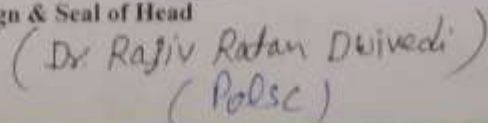 gn & Seal of Head
(Dr. Rajiv Ratan Dwivedi)
(Polsc)